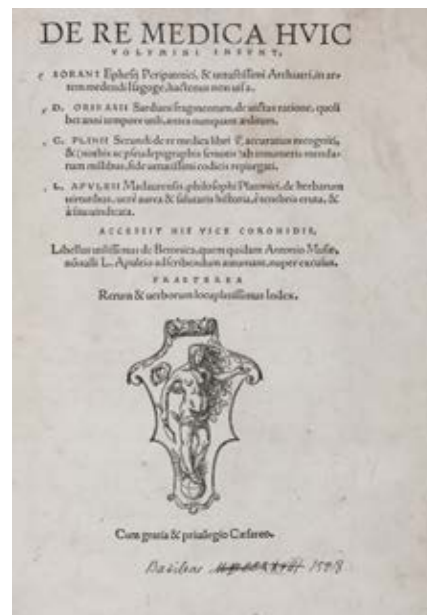 DE RE MEDICA HVIC
VOLVMINI INSVNT,
SORANI Ephesij Peripatetici, & uetustissimi Archiatri, in ar-
tem medendi Isagoge, hactenus non uisa.
D. ORIBASII Sardiani fragmentum, de uictus ratione, quoli
bet anni tempore utili, antea nunquam æditum.
C. PLINII Secundi de re medica libri accuratius recogniti,
& nothis ac pseudepigraphis semotis, ab innumeris menda-
rum millibus, fide uetustissimi codicis repurgati.
L. APVLEII Madaurensis, philosophi Platonici, de herbarum
uirtutibus, uerè aurea & salutaris historia, è tenebris eruta, &
à situ uindicata.
ACCESSIT HIS VICE CORONIDIS,
Libellus utilissimus de Betonica, quem quidam Antonio Musæ,
nõnulli L. Apuleio adscribendum autumant, nuper excusus.
PRAETEREA
Rerum & uerborum locupletissimus Index.
Cum gratia & priuilegio Cæsareo.
Basileae 1528